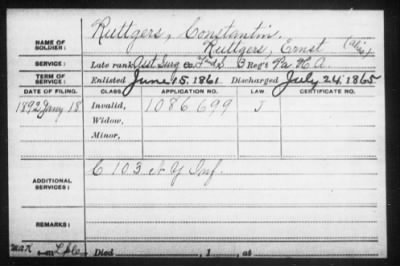 NAME OF SOLDIER: Ruttgers, Constantin.
Ruttgers, Ernst (alias)
SERVICE: Late rank Asst Surg Co. F & S. 3 Reg't Pa H A.
TERM OF SERVICE: Enlisted June 15, 1861 Discharged July 24, 1865
DATE OF FILING. CLASS. APPLICATION NO. LAW. CERTIFICATE NO.
1892 Jany 18 Invalid, 1086,699 J
Widow,
Minor,
ADDITIONAL SERVICES: C 103 N Y Inf.
REMARKS:
Died , 1 , at